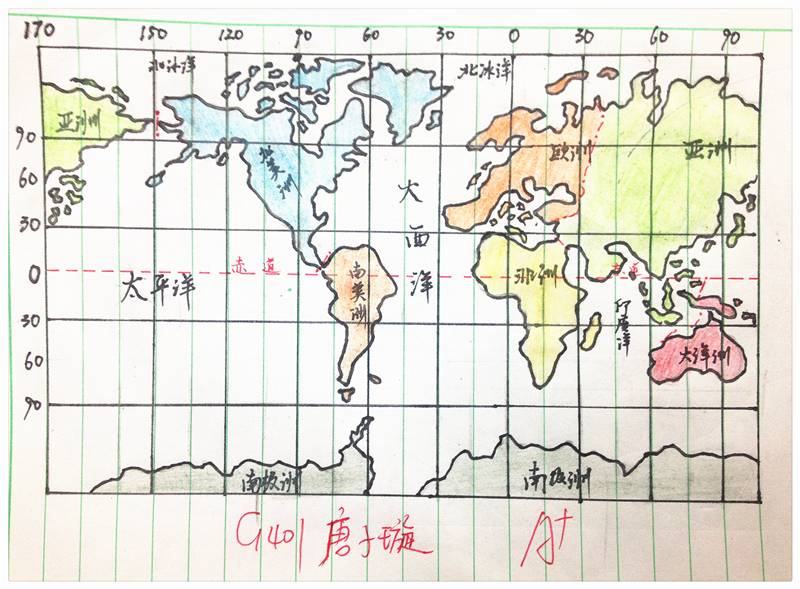 170 150 120 90 60 30 0 30 60 90
北冰洋 北冰洋
亚洲 欧洲 亚洲
90
北美洲
60
大西洋
30
赤道
0
太平洋 南美洲 非洲
30
印度洋
大洋洲
60
90
南极洲 南极洲
G401 唐子璇 A+